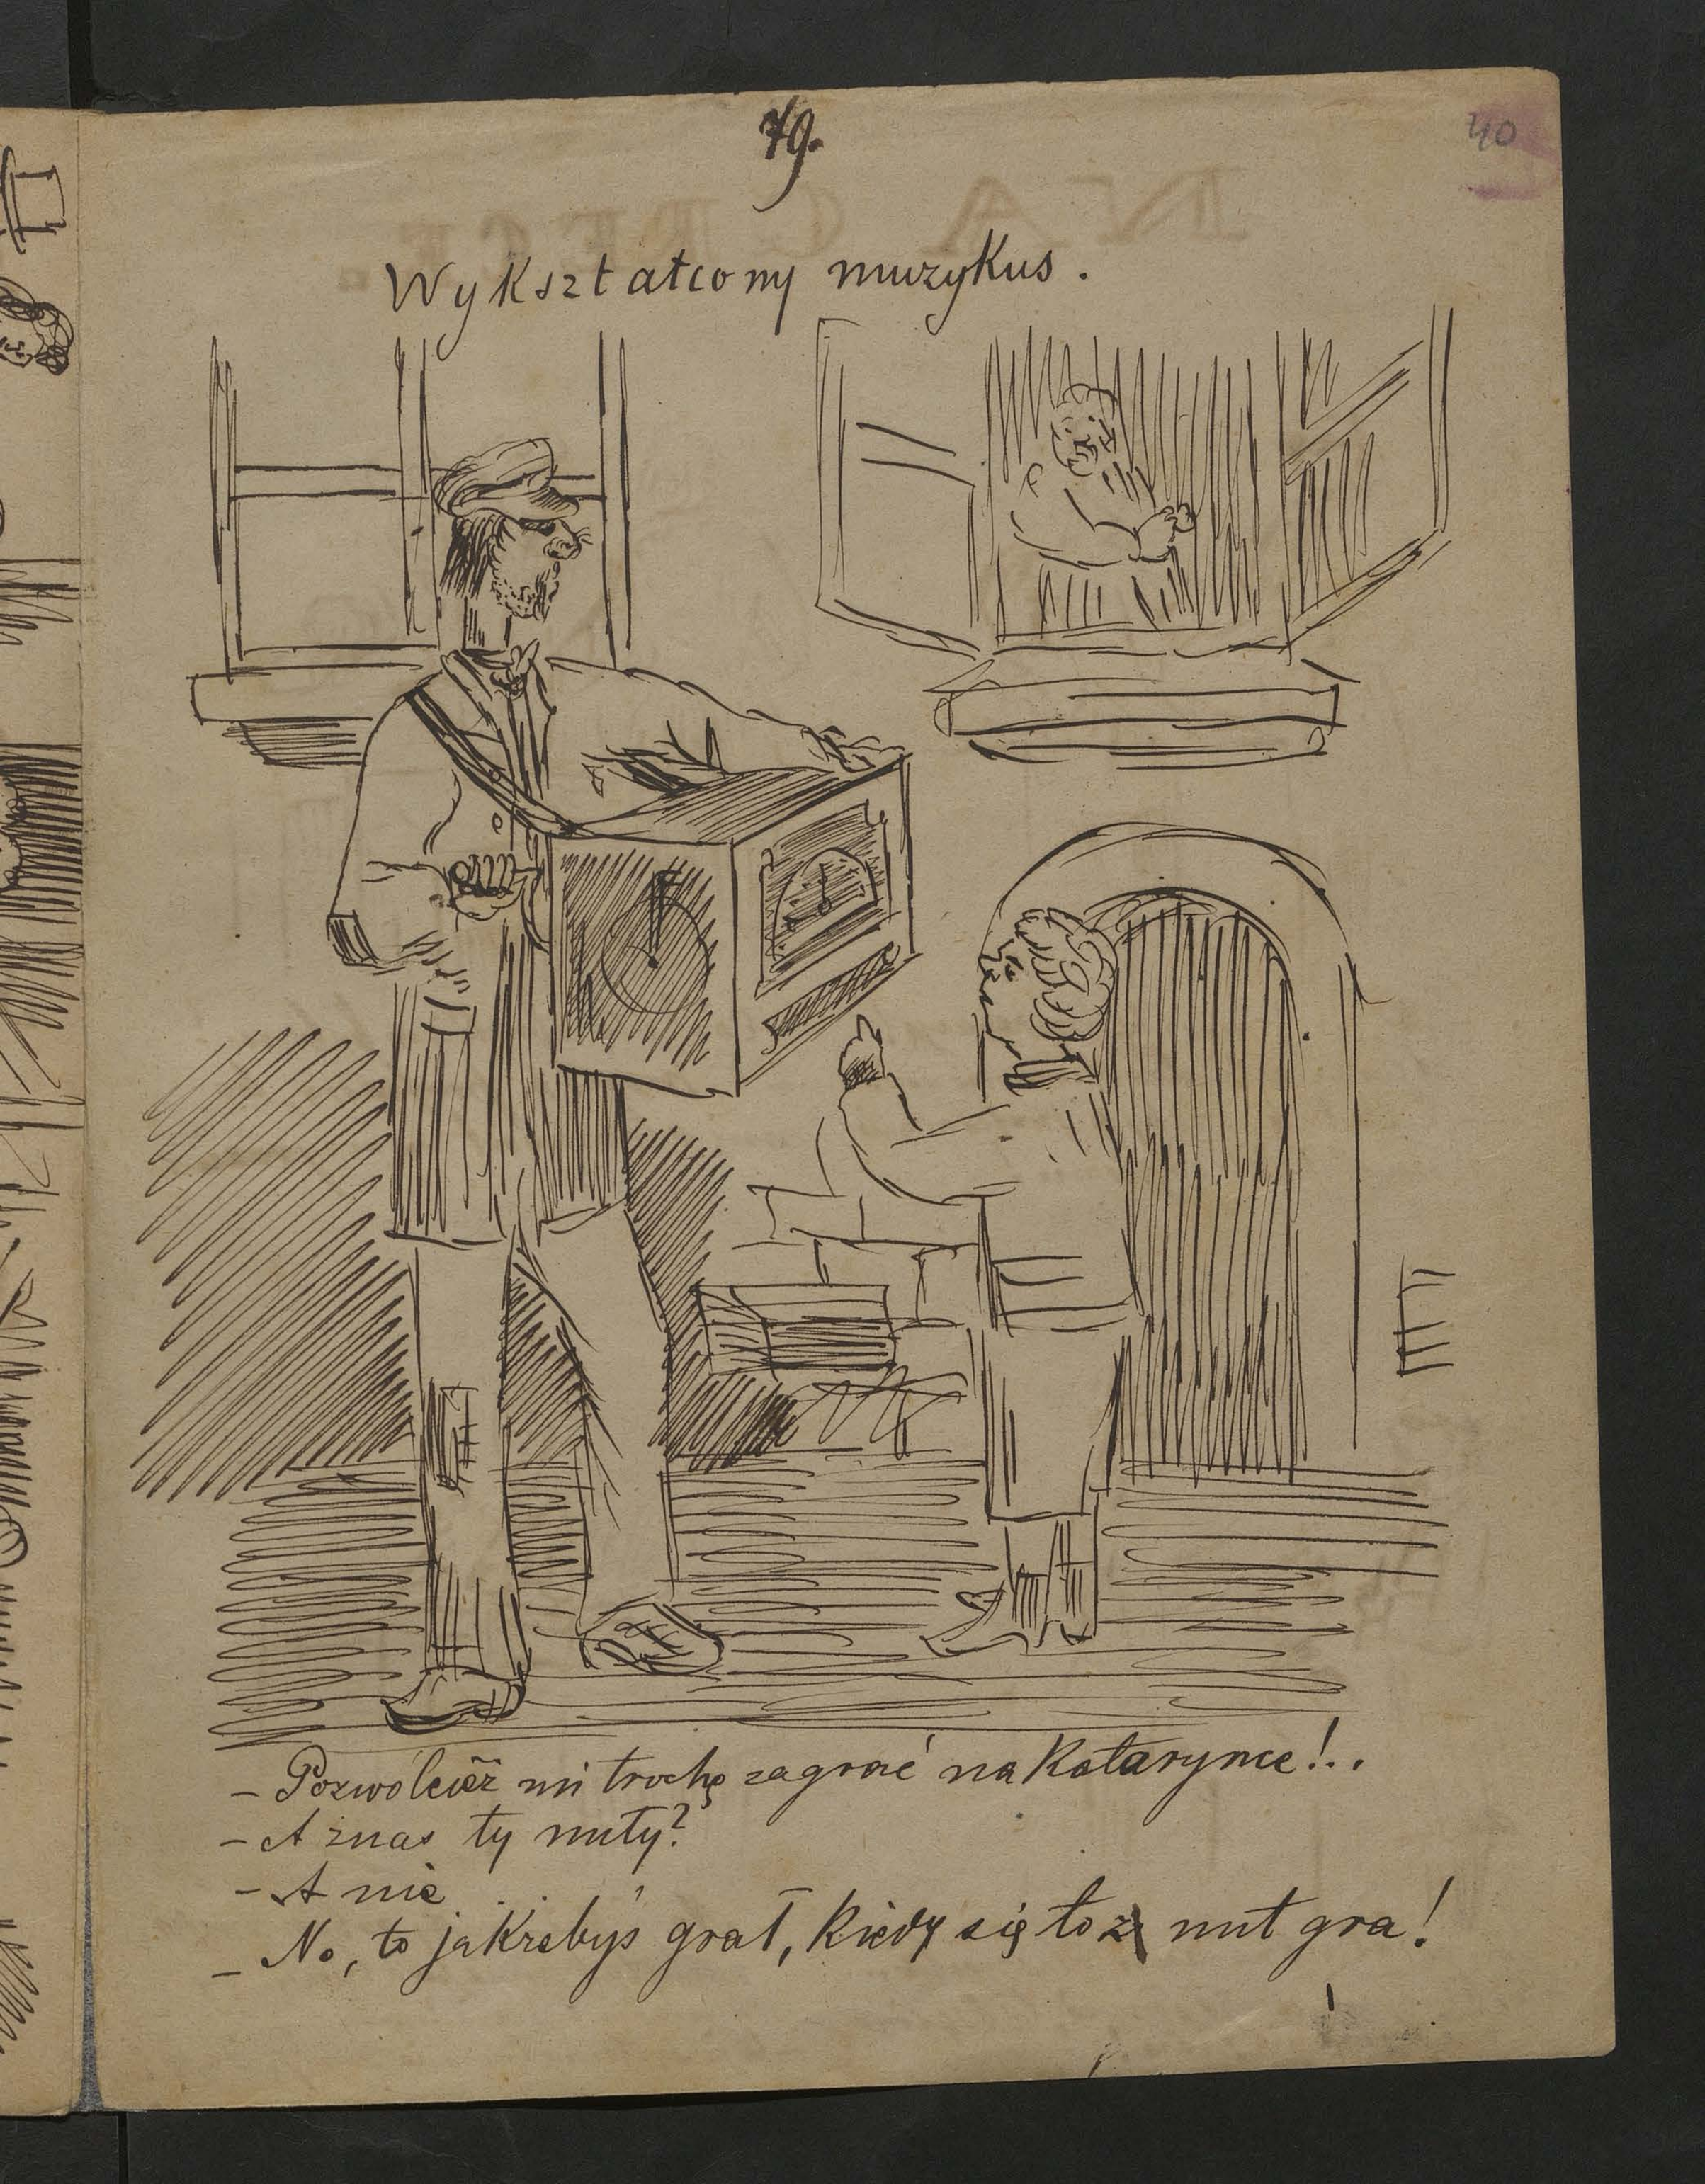 79.
40
Wykształcony muzykus.
– Pozwólcież mi trochę zagrać na Katarynce!..
– A znas ty nuty?
– A nie
– No, to jakżebyś grał, kiedy się to z nut gra!